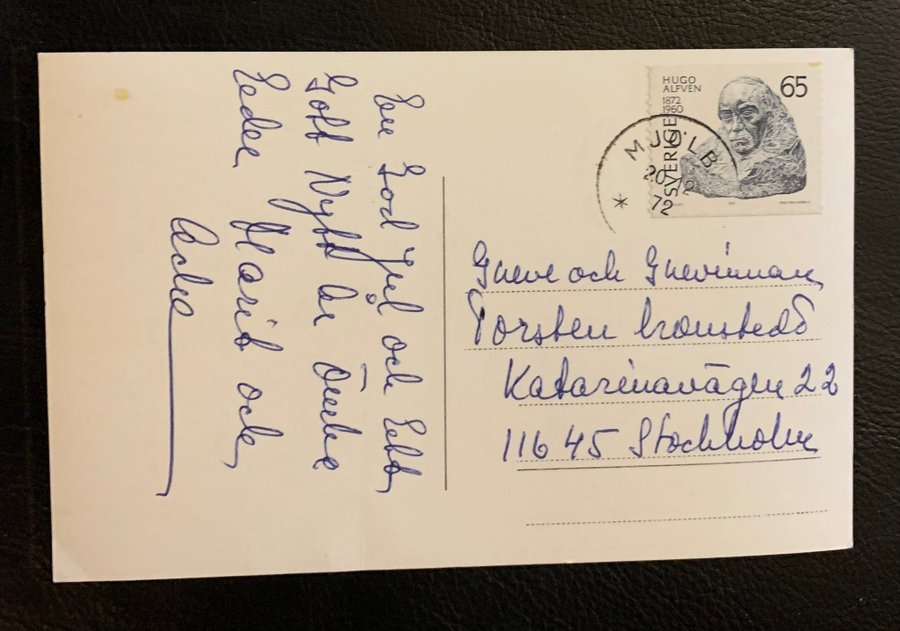 En God Jul och Ett
Gott Nytt År Önskar
Eder Marit och
HUGO
ALFVÉN
1872
1960
65
SVERIGE
MJÖLB
20 12
72
Greve och Grevinnan
Torsten Cronstedt
Katarinavägen 22
116 45 Stockholm